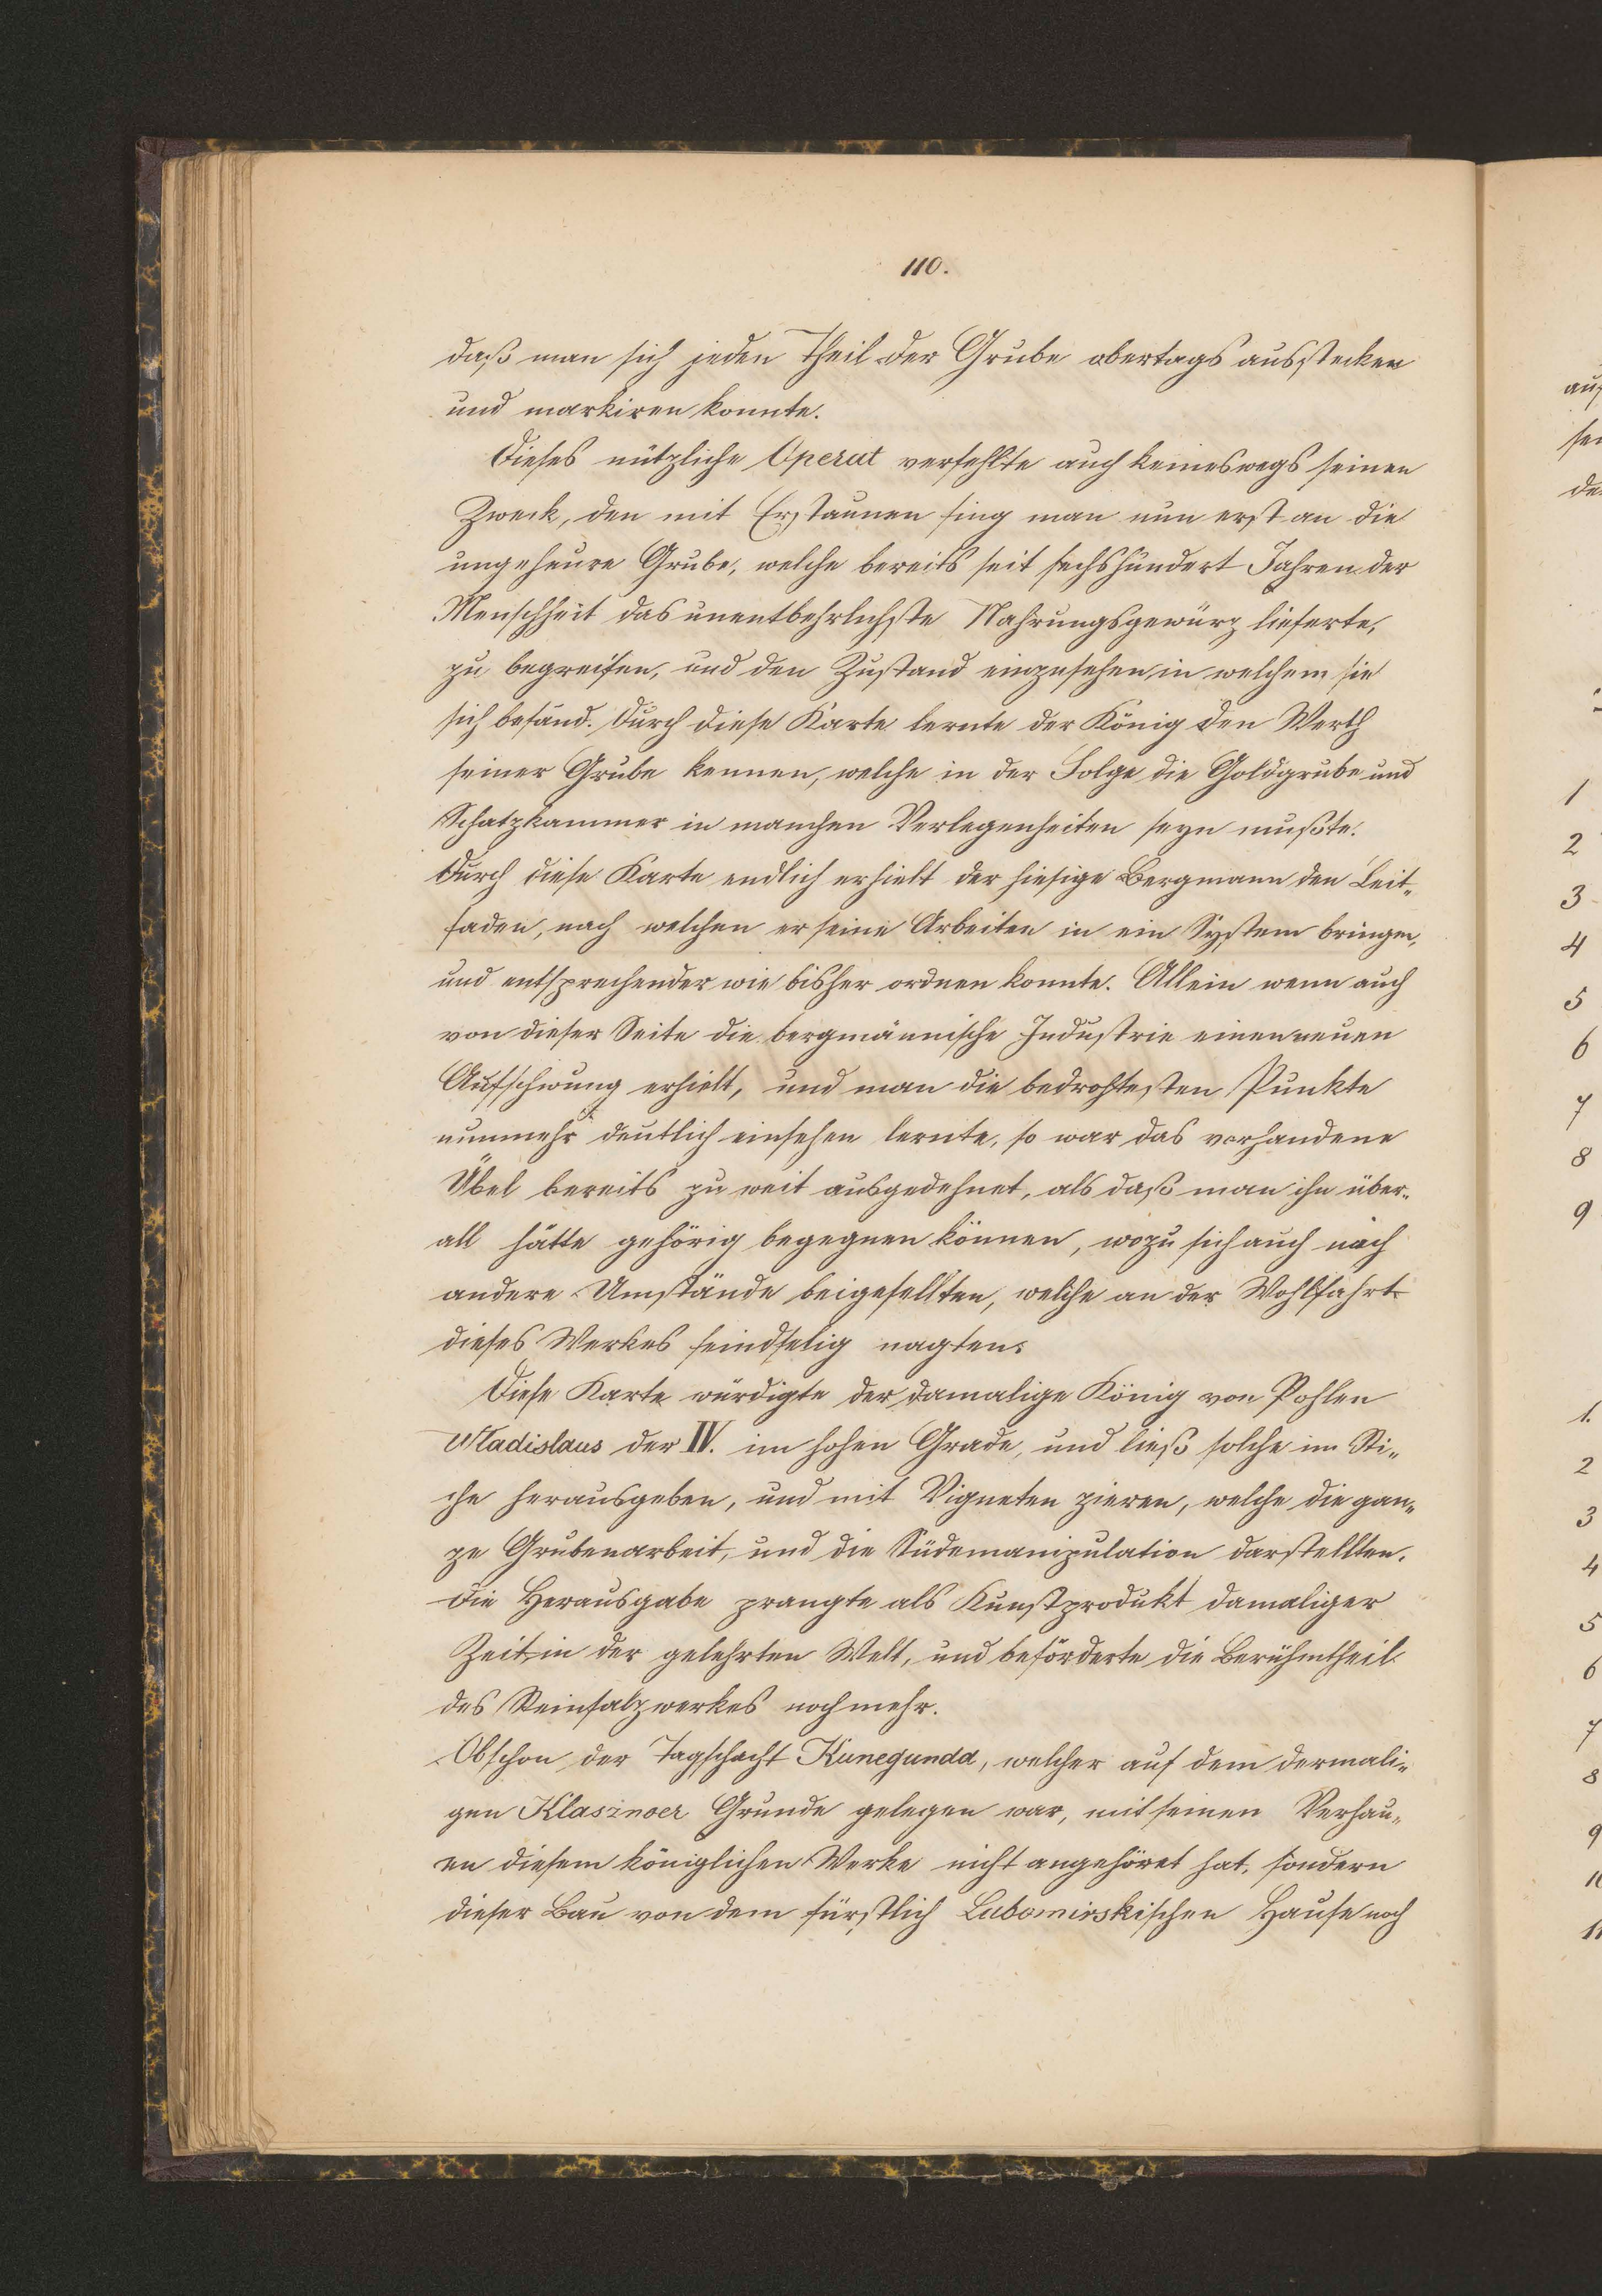 110.
daß man sich jeden Theil der Grube obertags ausstecken
und markiren konnte.
Dieses nützliche Operat verfehlte auch keineswegs seinen
Zweck, den mit Erstaunen fing man nun erst an die
ungeheure Grube, welche bereits seit sechshundert Jahren der
Menschheit das unentbehrlichste Nahrungsgewürz lieferte,
zu begreifen, und den Zustand einzusehen, in welchem sie
sich befand. Durch diese Karte lernte der König den Werth
seiner Grube kennen, welche in der Folge die Goldgrube und
Schatzkammer in manchen Verlegenheiten seyn mußte.
Durch diese Karte endlich erhielt der hiesige Bergmann den Leit„
faden, nach welchen er seine Arbeiten in ein System bringen,
und entsprechender wie bisher ordnen konnte. Allein wenn auch
von dieser Seite die bergmännische Industrie einen neuen
Aufschwung erhielt, und man die bedrohtesten Punkte
nunmehr deutlich einsehen lernte, so war das vorhandene
Übel bereits zu weit ausgedehnet, als daß man ihn über„
all hätte gehörig begegnen können, wozu sich auch noch
andere Umstände beigesellten, welche an der Wohlfahrt
dieses Werkes feindselig nagten.
Diese Karte würdigte der damalige König von Pohlen
Wladislaus der IV. im hohen Grade, und ließ solche im Sti„
che herausgeben, und mit Vigneten zieren, welche die gan„
ze Grubenarbeit, und die Südemanipulation darstellten.
Die Herausgabe prangte als Kunstprodukt damaliger
Zeit in der gelehrten Welt, und beförderte die Berühmtheit
des Steinsalzwerkes noch mehr.
Obschon der Tagschacht Kunegunda, welcher auf dem dermali„
gen Klasznoer Grunde gelegen war, mit seinen Verhau„
en diesem königlichen Werke nicht angehöret hat, sondern
dieser Bau von dem fürstlich Lubomirskischen Hause noch
1
2
3
4
5
6
7
8
9
1.
2
3
4
5
6
7
8
9